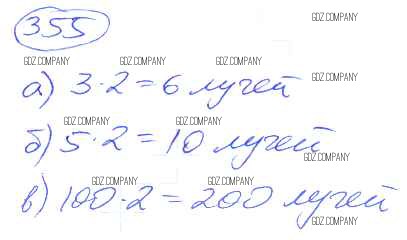 355
GDZ.COMPANY
GDZ.COMPANY GDZ.COMPANY GDZ.COMPANY
GDZ.COMPANY
а) 3·2=6 лучей
GDZ.COMPANY GDZ.COMPANY
б) 5·2=10 лучей
GDZ.COMPANY
GDZ.COMPANY GDZ.COMPANY
в) 100·2=200 лучей
GDZ.COMPANY